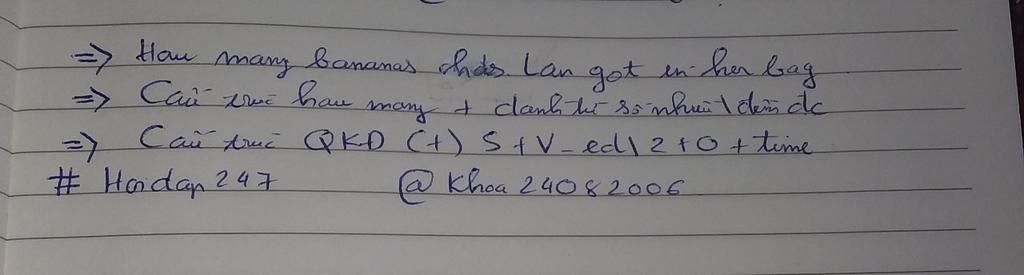 => How many bananas does Lan got in her bag
=> Cấu trúc how many + danh từ số nhiều \ đếm đc
=> Cấu trúc QKD (+) S + V_ed \ 2 + O + time
# Hoidap247 @Khoa24082006